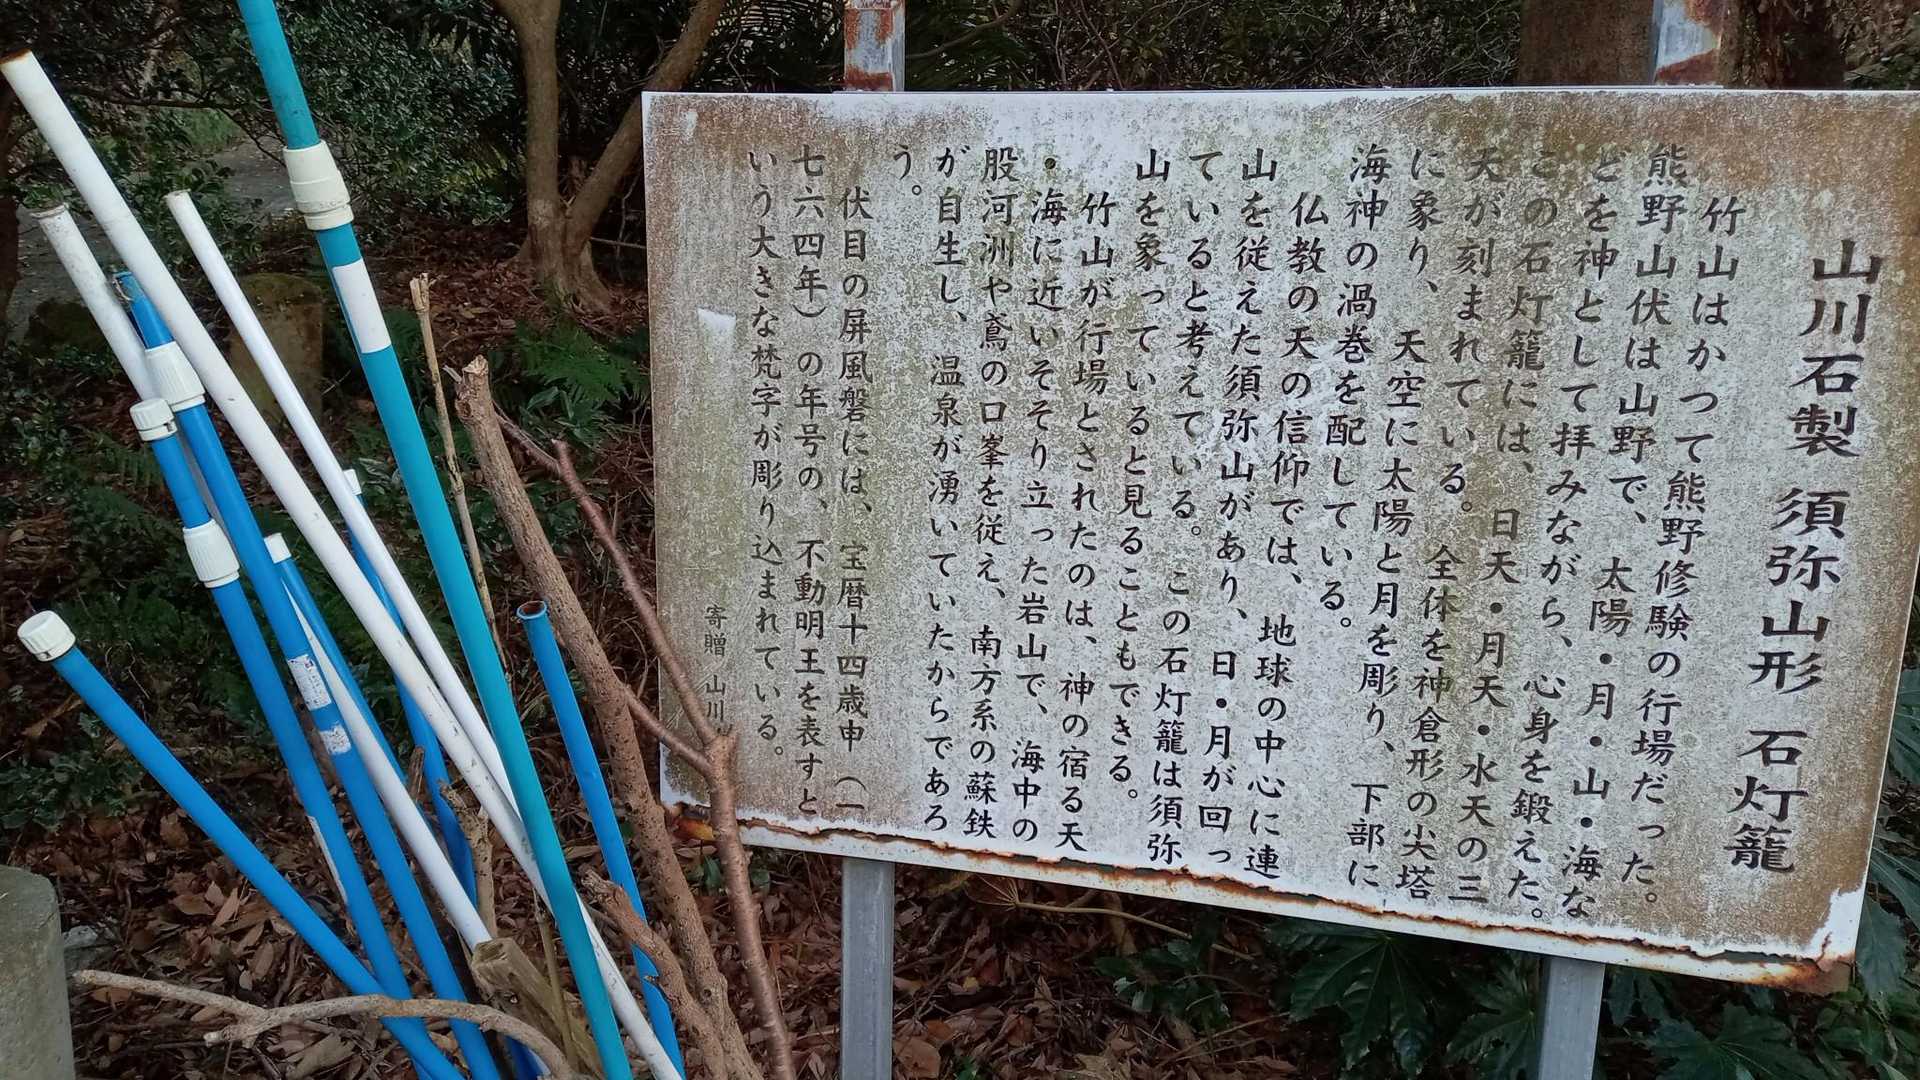 山川石製 須弥山形 石灯籠
竹山はかつて熊野修験の行場だった。
熊野山伏は山野で、太陽・月・山・海な
どを神として拝みながら、心身を鍛えた。
この石灯籠には、日天・月天・水天の三
天が刻まれている。全体を神倉形の尖塔
に象り、天空に太陽と月を彫り、下部に
海神の渦巻を配している。
仏教の天の信仰では、地球の中心に連
山を従えた須弥山があり、日・月が回っ
ていると考えている。この石灯籠は須弥
山を象っていると見ることもできる。
竹山が行場とされたのは、神の宿る天
・海に近いそそり立った岩山で、海中の
股河洲や鳶の口峯を従え、南方系の蘇鉄
が自生し、温泉が湧いていたからであろ
う。
伏目の屏風磐には、宝暦十四歳申（一
七六四年）の年号の、不動明王を表すと
いう大きな梵字が彫り込まれている。
寄贈 山川